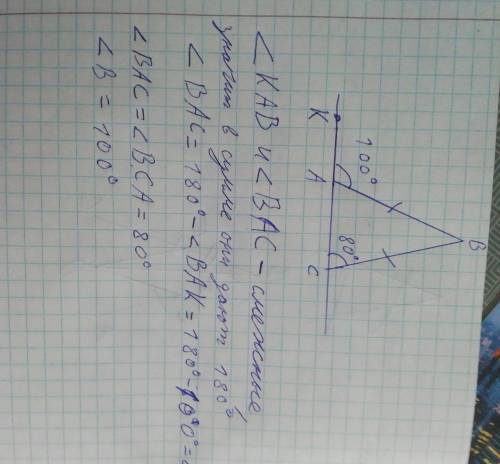 K
100°
A
B
80°
C
< KAB и < BAC – смежные
значит в сумме они дают 180°
< BAC = 180° – < BAK = 180° – 100° =
< BAC = < BCA = 80°
< B = 100°